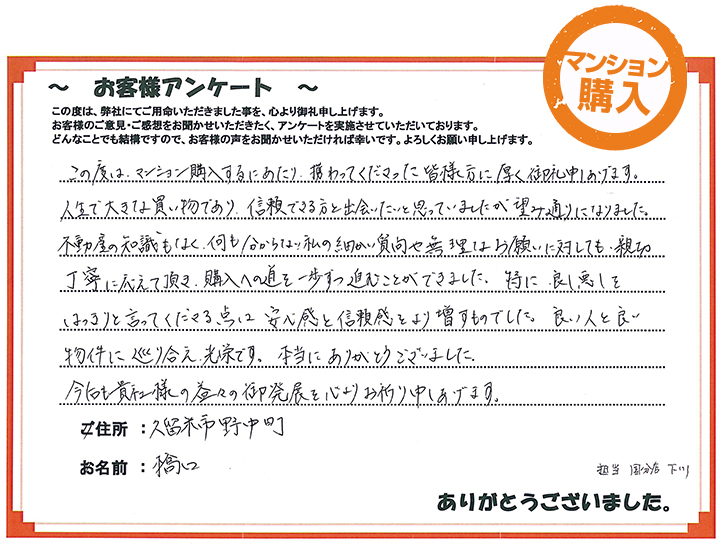 マンション
購入
～ お客様アンケート ～
この度は、弊社にてご用命いただきました事を、心より御礼申し上げます。
お客様のご意見・ご感想をお聞かせいただきたく、アンケートを実施させていただいております。
どんなことでも結構ですので、お客様の声をお聞かせいただければ幸いです。よろしくお願い申し上げます。
この度は、マンション購入するにあたり、携わってくださった皆様方に厚く御礼申しあげます。
人生で大きな買い物であり、信頼できる方と出会いたいと思っていましたが望み通りになりました。
不動産の知識もなく、何も分からない私の細かい質問や無理なお願いに対しても、親切
丁寧に応えて頂き、購入への道を一歩ずつ進むことができました。特に、良し悪しを
はっきりと言ってくださる点は、安心感と信頼感をより増すものでした。良い人と良い
物件に巡り合え、光栄です。本当にありがとうございました。
今后も貴社様の益々の御発展を心よりお祈り申しあげます。
ご住所 ：久留米市野中町
お名前 ：橋口
担当 国分店 下川
ありがとうございました。